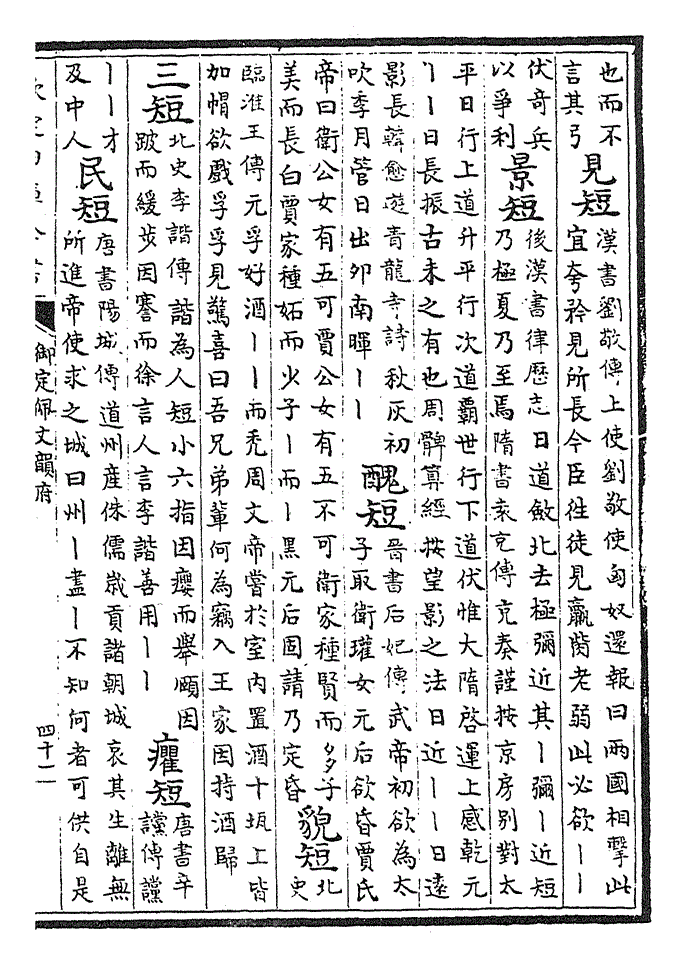 也而不
言其弓
見短
漢書劉敬傳上使劉敬使匈奴還報曰兩國相擊此
宜夸矜見所長今臣徃徒見羸胔老弱此必欲丨丨
伏奇兵
以爭利
景短
後漢書律歷志日道斂北去極彌近其丨彌丨近短
乃極夏乃至焉隋書袁充傳充奏謹按京房別對太
平日行上道升平行次道霸世行下道伏惟大隋啓運上感乾元
丨丨日長振古未之有也周髀算經按望影之法日近丨丨日逺
影長韓愈遊青龍寺詩秋灰初
吹季月管日出卯南暉丨丨
醜短
晉書后妃傳武帝初欲為太
子取衛瓘女元后欲昏賈氏
帝曰衛公女有五可賈公女有五不可衛家種賢而多子
美而長白賈家種妬而少子丨而丨黑元后固請乃定昏
貌短
北
史
臨淮王傳元孚好酒丨丨而禿周文帝嘗於室内置酒十瓨上皆
加帽欲戲孚孚見驚喜曰吾兄弟輩何為竊入王家因持酒歸
三短
北史李諧傳諧為人短小六指因癭而舉頤因
跛而緩步因謇而徐言人言李諧善用丨丨
癯短
唐書辛
讜傳讜
丨丨才
及中人
民短
唐書陽城傳道州産侏儒嵗貢諸朝城哀其生離無
所進帝使求之城曰州丨盡丨不知何者可供自是
御定佩文韻府
四十二